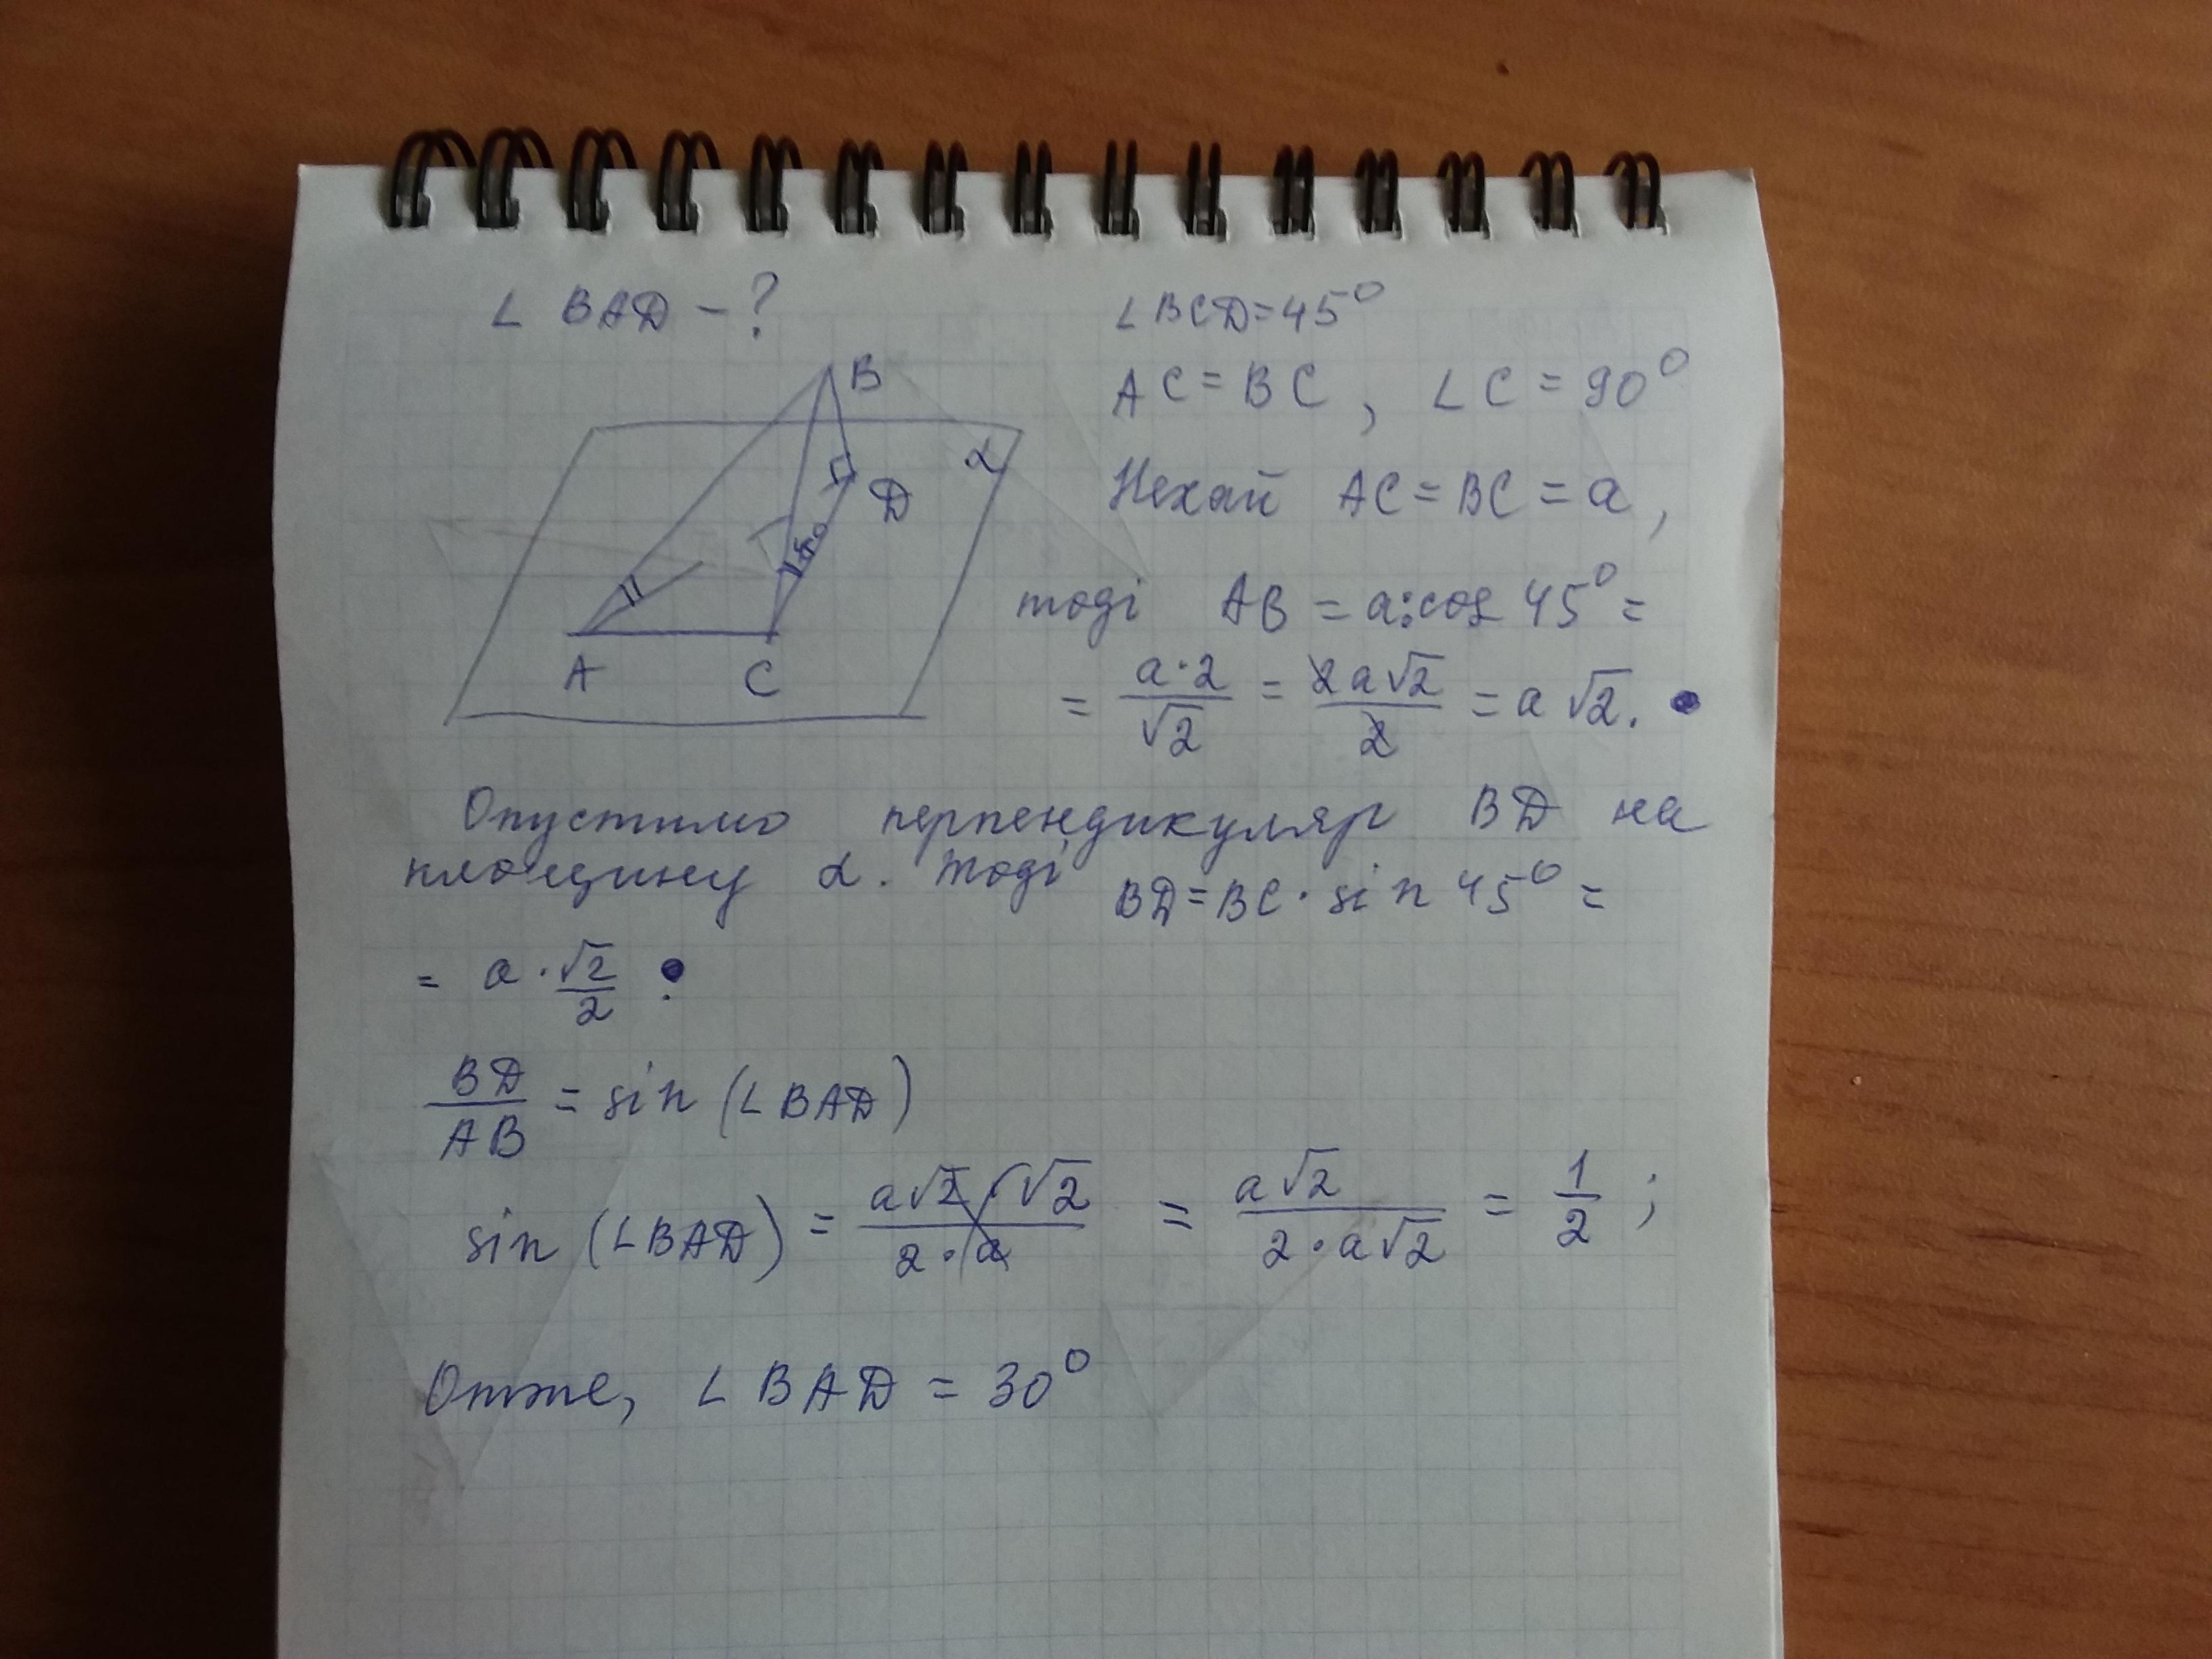 ∠ BAD - ?
∠BCD=45°
AC=BC, ∠C=90°
B
α
D
45°
A
C
Нехай AC=BC=a,
тоді AB = a:cos 45° =
= a·2/√2 = 2a√2/2 = a√2.
Опустимо перпендикуляр BD на
площину α. Тоді BD=BC·sin 45° =
= a·√2/2.
BD/AB = sin (∠BAD)
sin (∠BAD) = = a√2/2·a√2 = 1/2;
Отже, ∠BAD = 30°